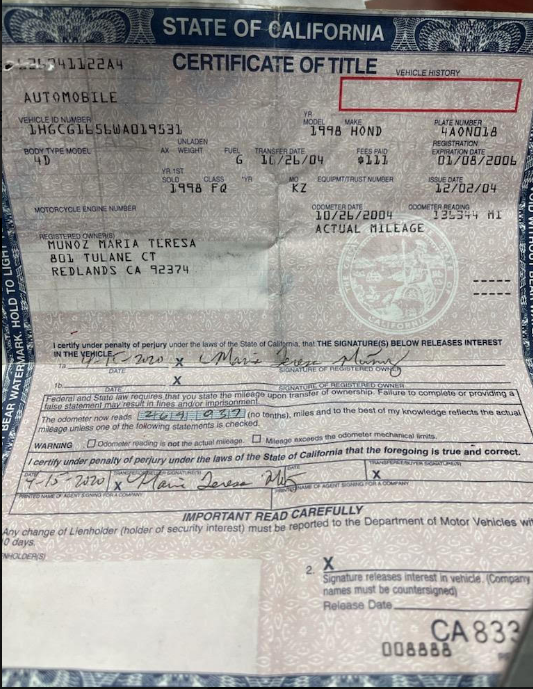 STATE OF CALIFORNIA
CERTIFICATE OF TITLE
VEHICLE HISTORY
AUTOMOBILE
VEHICLE ID NUMBER
YR MODEL MAKE PLATE NUMBER
1HGCG1656WA019531 1998 HOND 4AON018
BODY TYPE MODEL AX UNLADEN WEIGHT FUEL TRANSFER DATE FEES PAID REGISTRATION EXPIRATION DATE
4D G 10/26/04 $111 01/08/2006
YR 1ST SOLD CLASS *YR MO EQUIPMT/TRUST NUMBER ISSUE DATE
1998 FQ KZ 12/02/04
MOTORCYCLE ENGINE NUMBER ODOMETER DATE ODOMETER READING
10/26/2004 MI
ACTUAL MILEAGE
REGISTERED OWNER(S)
MUNOZ MARIA TERESA
801 TULANE CT
REDLANDS CA 92374
CALIFORNIA
I certify under penalty of perjury under the laws of the State of California, that THE SIGNATURE(S) BELOW RELEASES INTEREST
IN THE VEHICLE.
1a. 4-15-2020 X Maria Teresa Muñoz
DATE SIGNATURE OF REGISTERED OWNER
1b. X
DATE SIGNATURE OF REGISTERED OWNER
Federal and State law requires that you state the mileage upon transfer of ownership. Failure to complete or providing a
false statement may result in fines and/or imprisonment.
The odometer now reads 269 037 (no tenths), miles and to the best of my knowledge reflects the actual
mileage unless one of the following statements is checked.
WARNING Odometer reading is not the actual mileage. Mileage exceeds the odometer mechanical limits.
I certify under penalty of perjury under the laws of the State of California that the foregoing is true and correct.
DATE
4-15-2020 X Maria Teresa X
PRINTED NAME OF AGENT SIGNING FOR A COMPANY NAME OF AGENT SIGNING FOR A COMPANY
IMPORTANT READ CAREFULLY
Any change of Lienholder (holder of security interest) must be reported to the Department of Motor Vehicles
0 days.
NHOLDER(S)
2. X
Signature releases interest in vehicle. (Company
names must be countersigned)
Release Date
CA 833
008888
BEAR WATERMARK. HOLD TO LIGHT